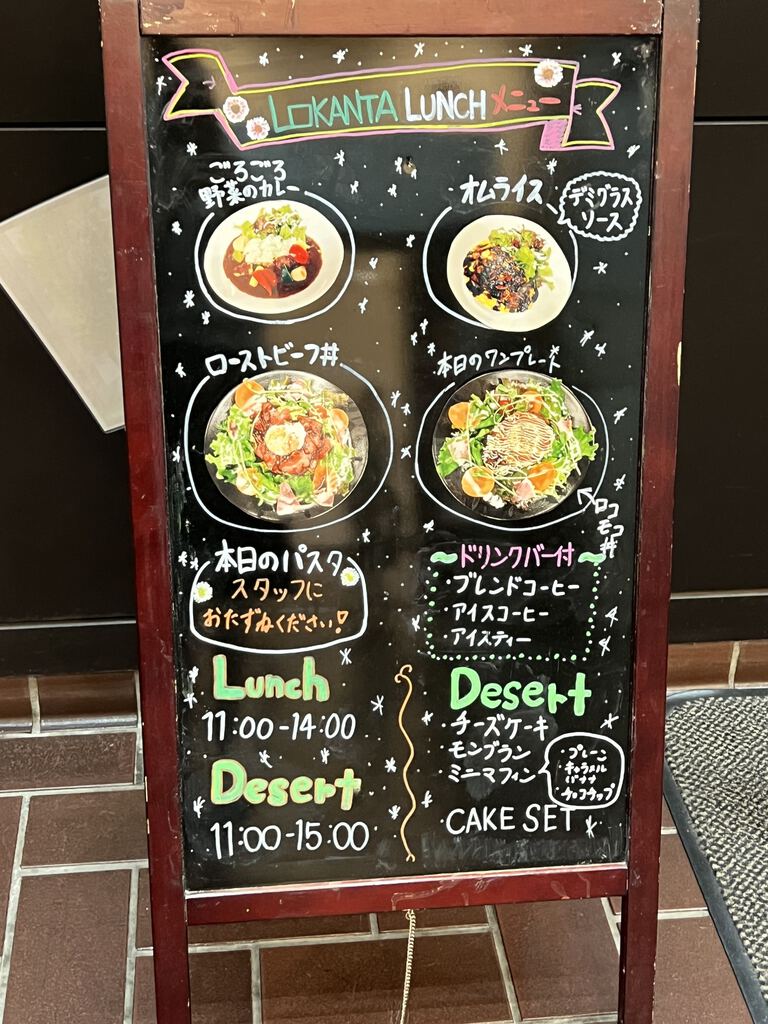 LOKANTA LUNCH メニュー
ごろごろ
野菜のカレー
オムライス
デミグラス
ソース
ローストビーフ丼
本日のワンプレート
ロコ
モコ
丼
本日のパスタ
スタッフに
おたずねください!
〜ドリンクバー付〜
・ブレンドコーヒー
・アイスコーヒー
・アイスティー
Lunch
11:00-14:00
Desert
11:00-15:00
Desert
・チーズケーキ
・モンブラン
・ミニマフィン
・プレーン
・キャラメル
バナナ
・チョコチップ
CAKE SET